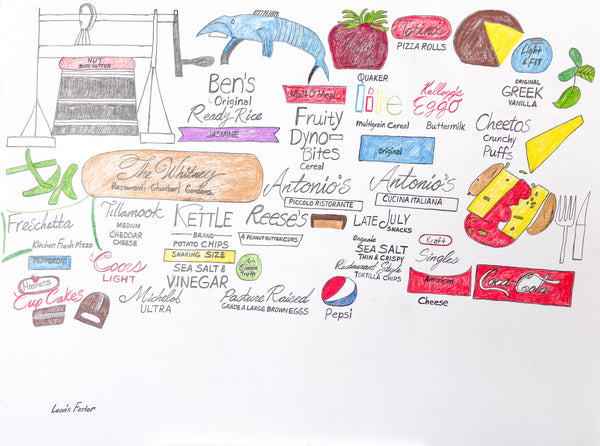 NUT
Totino's
PIZZA ROLLS
Light
& FIT
ORIGINAL
GREEK
VANILLA
Ben's
Original
Ready Rice
JASMINE
Malt-O-Meal
Fruity
DYNO-
BITES
Cereal
QUAKER
life
Multigrain Cereal
Original
Kellogg's
Eggo
Buttermilk
Cheetos
Crunchy
Puffs
The Whitney
Restaurant. Ghostbar. Gardens.
Antonio's
PICCOLO RISTORANTE
Antonio's
CUCINA ITALIANA
Freschetta
Kitchen Fresh Pizza
PEPPERONI
Tillamook
MEDIUM
CHEDDAR
CHEESE
KETTLE
BRAND
POTATO CHIPS
SHARING SIZE
SEA SALT &
VINEGAR
Reese's
4 PEANUT BUTTER CUPS
LATE JULY
SNACKS
Organic
SEA SALT
THIN & CRISPY
Restaurant Style
TORTILLA CHIPS
Kraft
Singles
American
Cheese
Coca-Cola
Coors
LIGHT
Simple
Truth
Hostess
Cup Cakes
Michelob
ULTRA
Pasture Raised
GRADE A LARGE BROWN EGGS
Pepsi
Lewis Foster